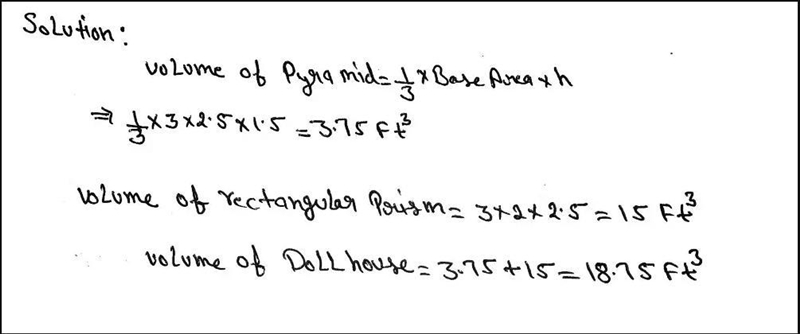 Solution:
volume of Pyramid = 1/3 × Base Area × h
⇒ 1/3 × 3 × 2.5 × 1.5 = 3.75 Ft³
volume of rectangular Prism = 3 × 2 × 2.5 = 15 Ft³
volume of Doll house = 3.75 + 15 = 18.75 Ft³